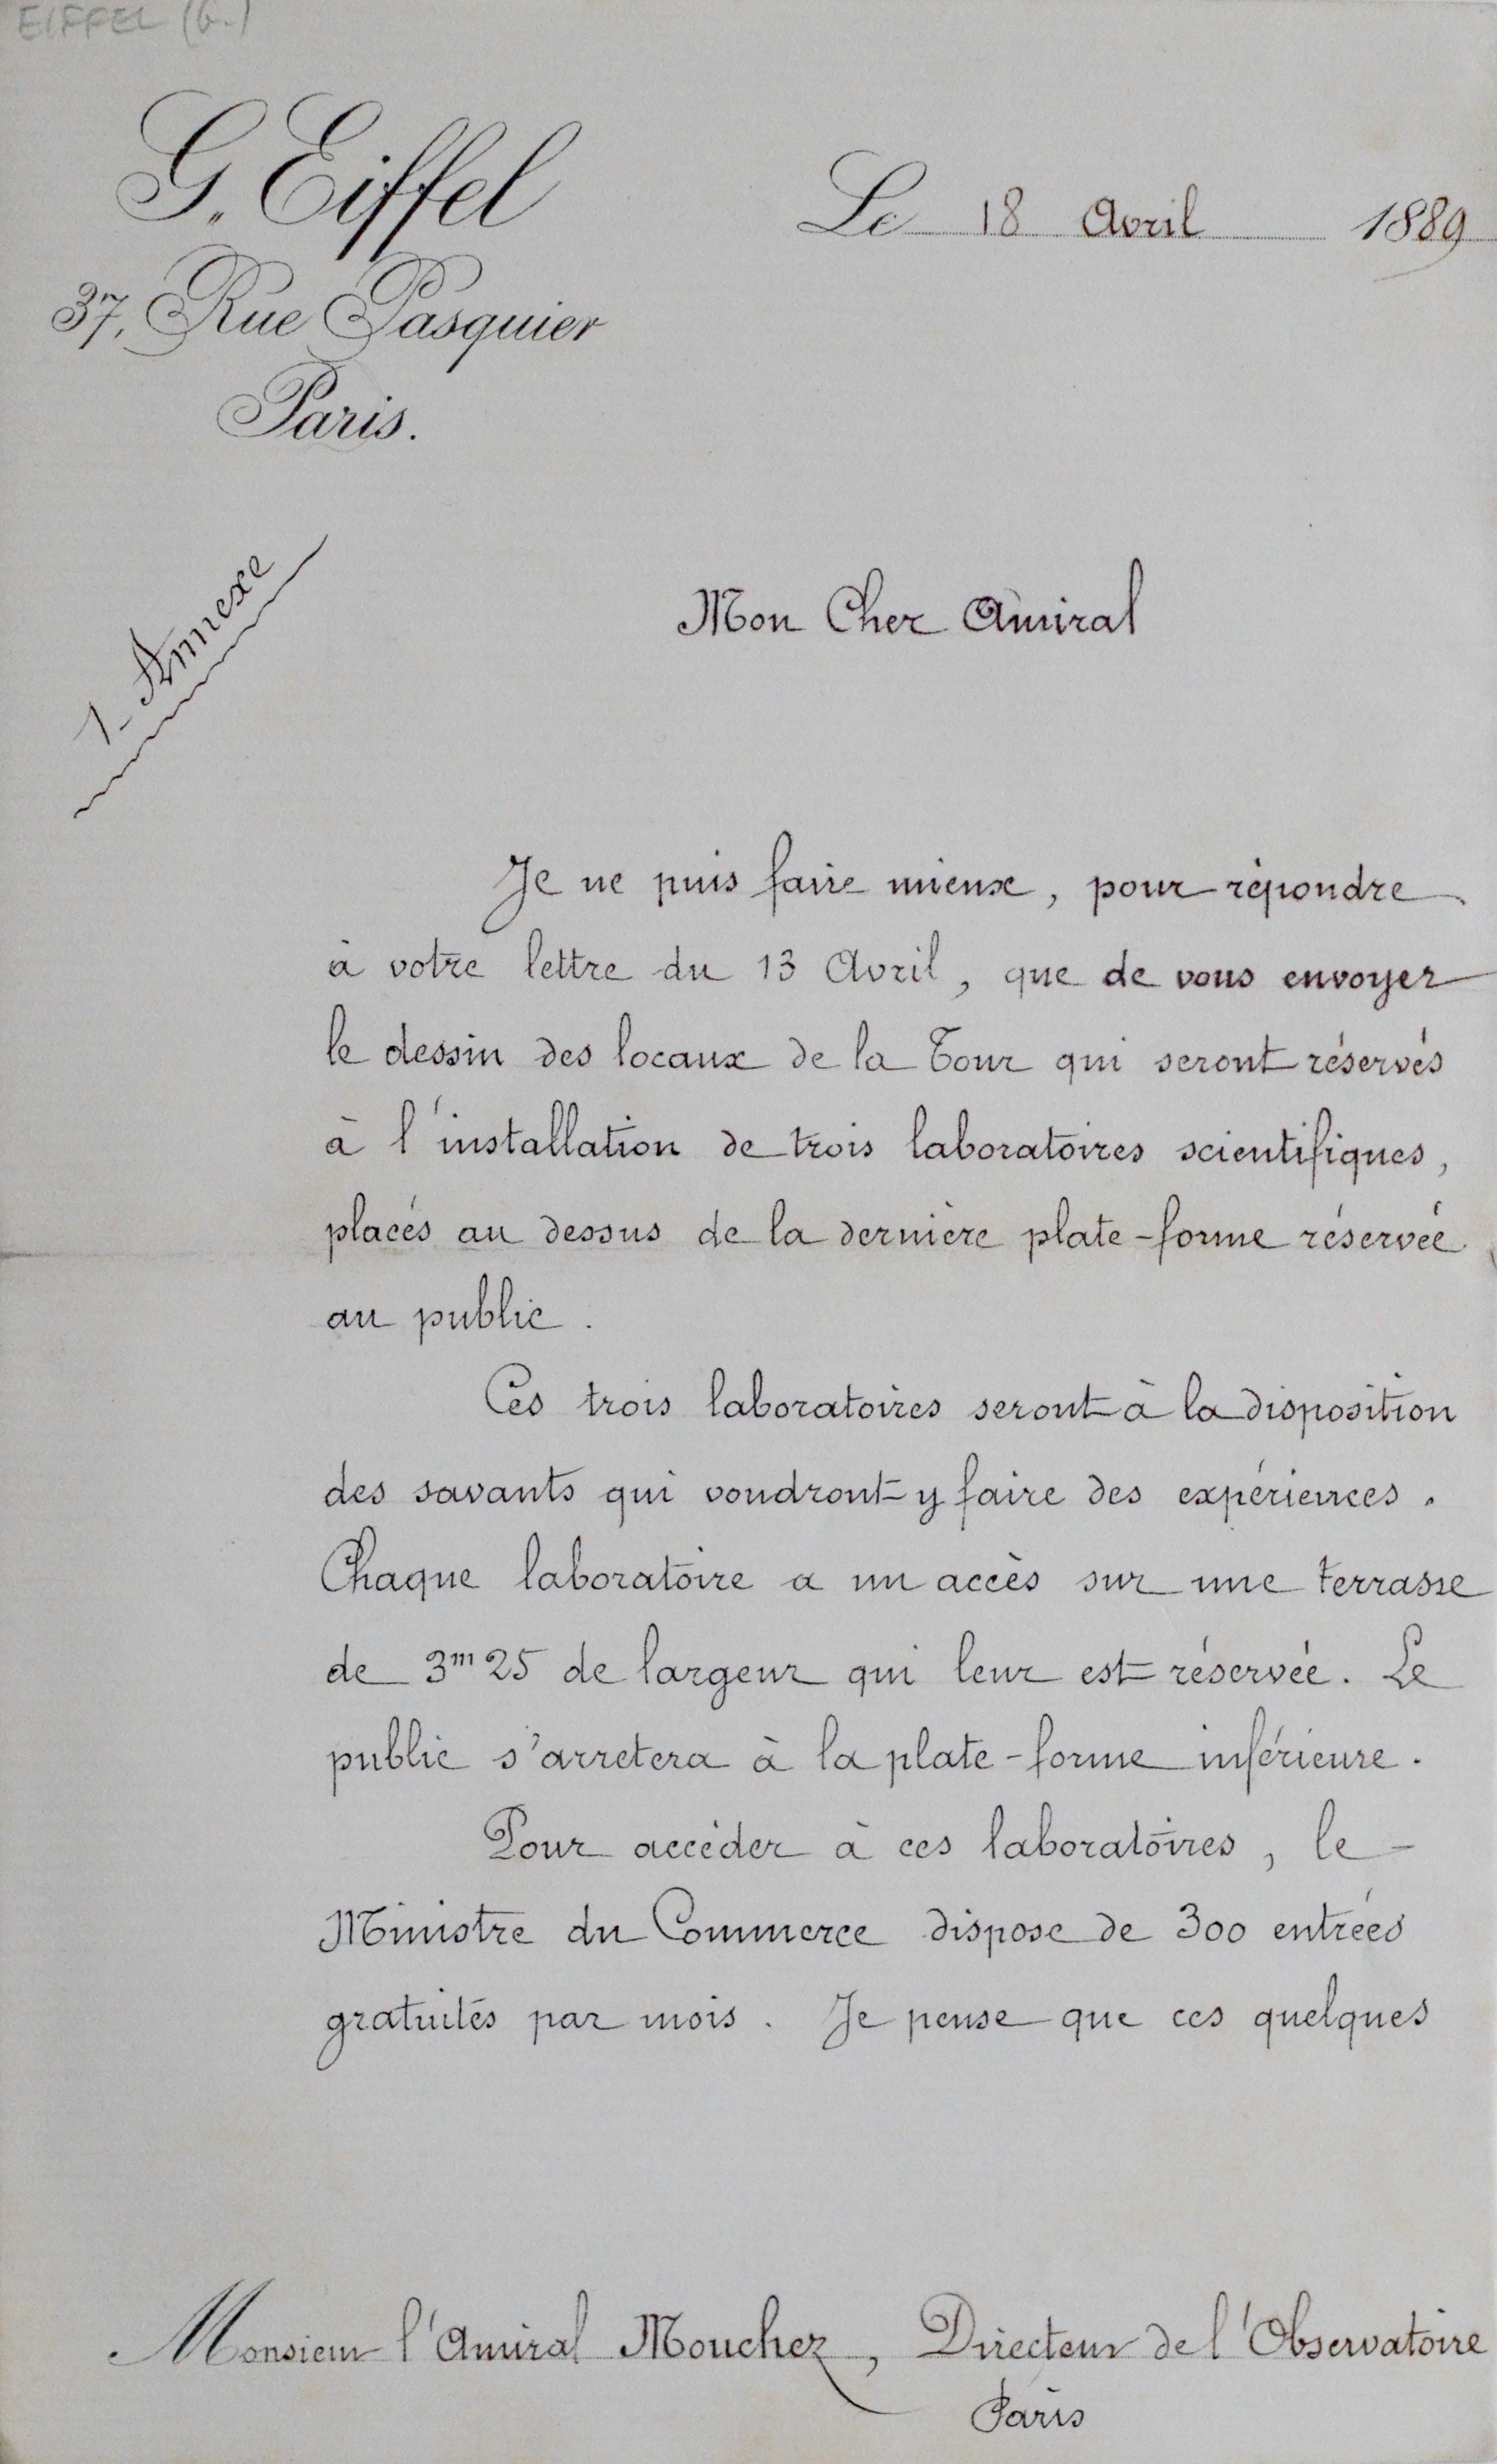 EIFFEL (G.)
G. Eiffel
37, Rue Pasquier
Paris.
Le 18 Avril 1889
1 - Annexe
Mon Cher Amiral
Je ne puis faire mieux, pour répondre
à votre lettre du 13 Avril, que de vous envoyer
le dessin des locaux de la Tour qui seront réservés
à l'installation de trois laboratoires scientifiques,
placés au dessus de la dernière plate-forme réservée
au public.
Ces trois laboratoires seront à la disposition
des savants qui voudront y faire des expériences.
Chaque laboratoire a un accès sur une terrasse
de 3m25 de largeur qui leur est réservée. Le
public s'arretera à la plate-forme inférieure.
Pour accéder à ces laboratoires, le
Ministre du Commerce dispose de 300 entrées
gratuités par mois. Je pense que ces quelques
Monsieur l'Amiral Mouchez, Directeur de l'Observatoire
Paris